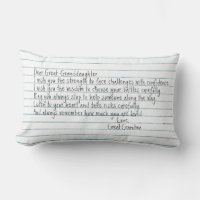 My Great Granddaughter,
I wish you the strength to face challenges with confidence.
I wish you the wisdom to choose your battles carefully.
May you always stop to help someone along the way.
Listen to your heart and take risks carefully.
And always remember how much you are loved.
Love,
Great Grandma